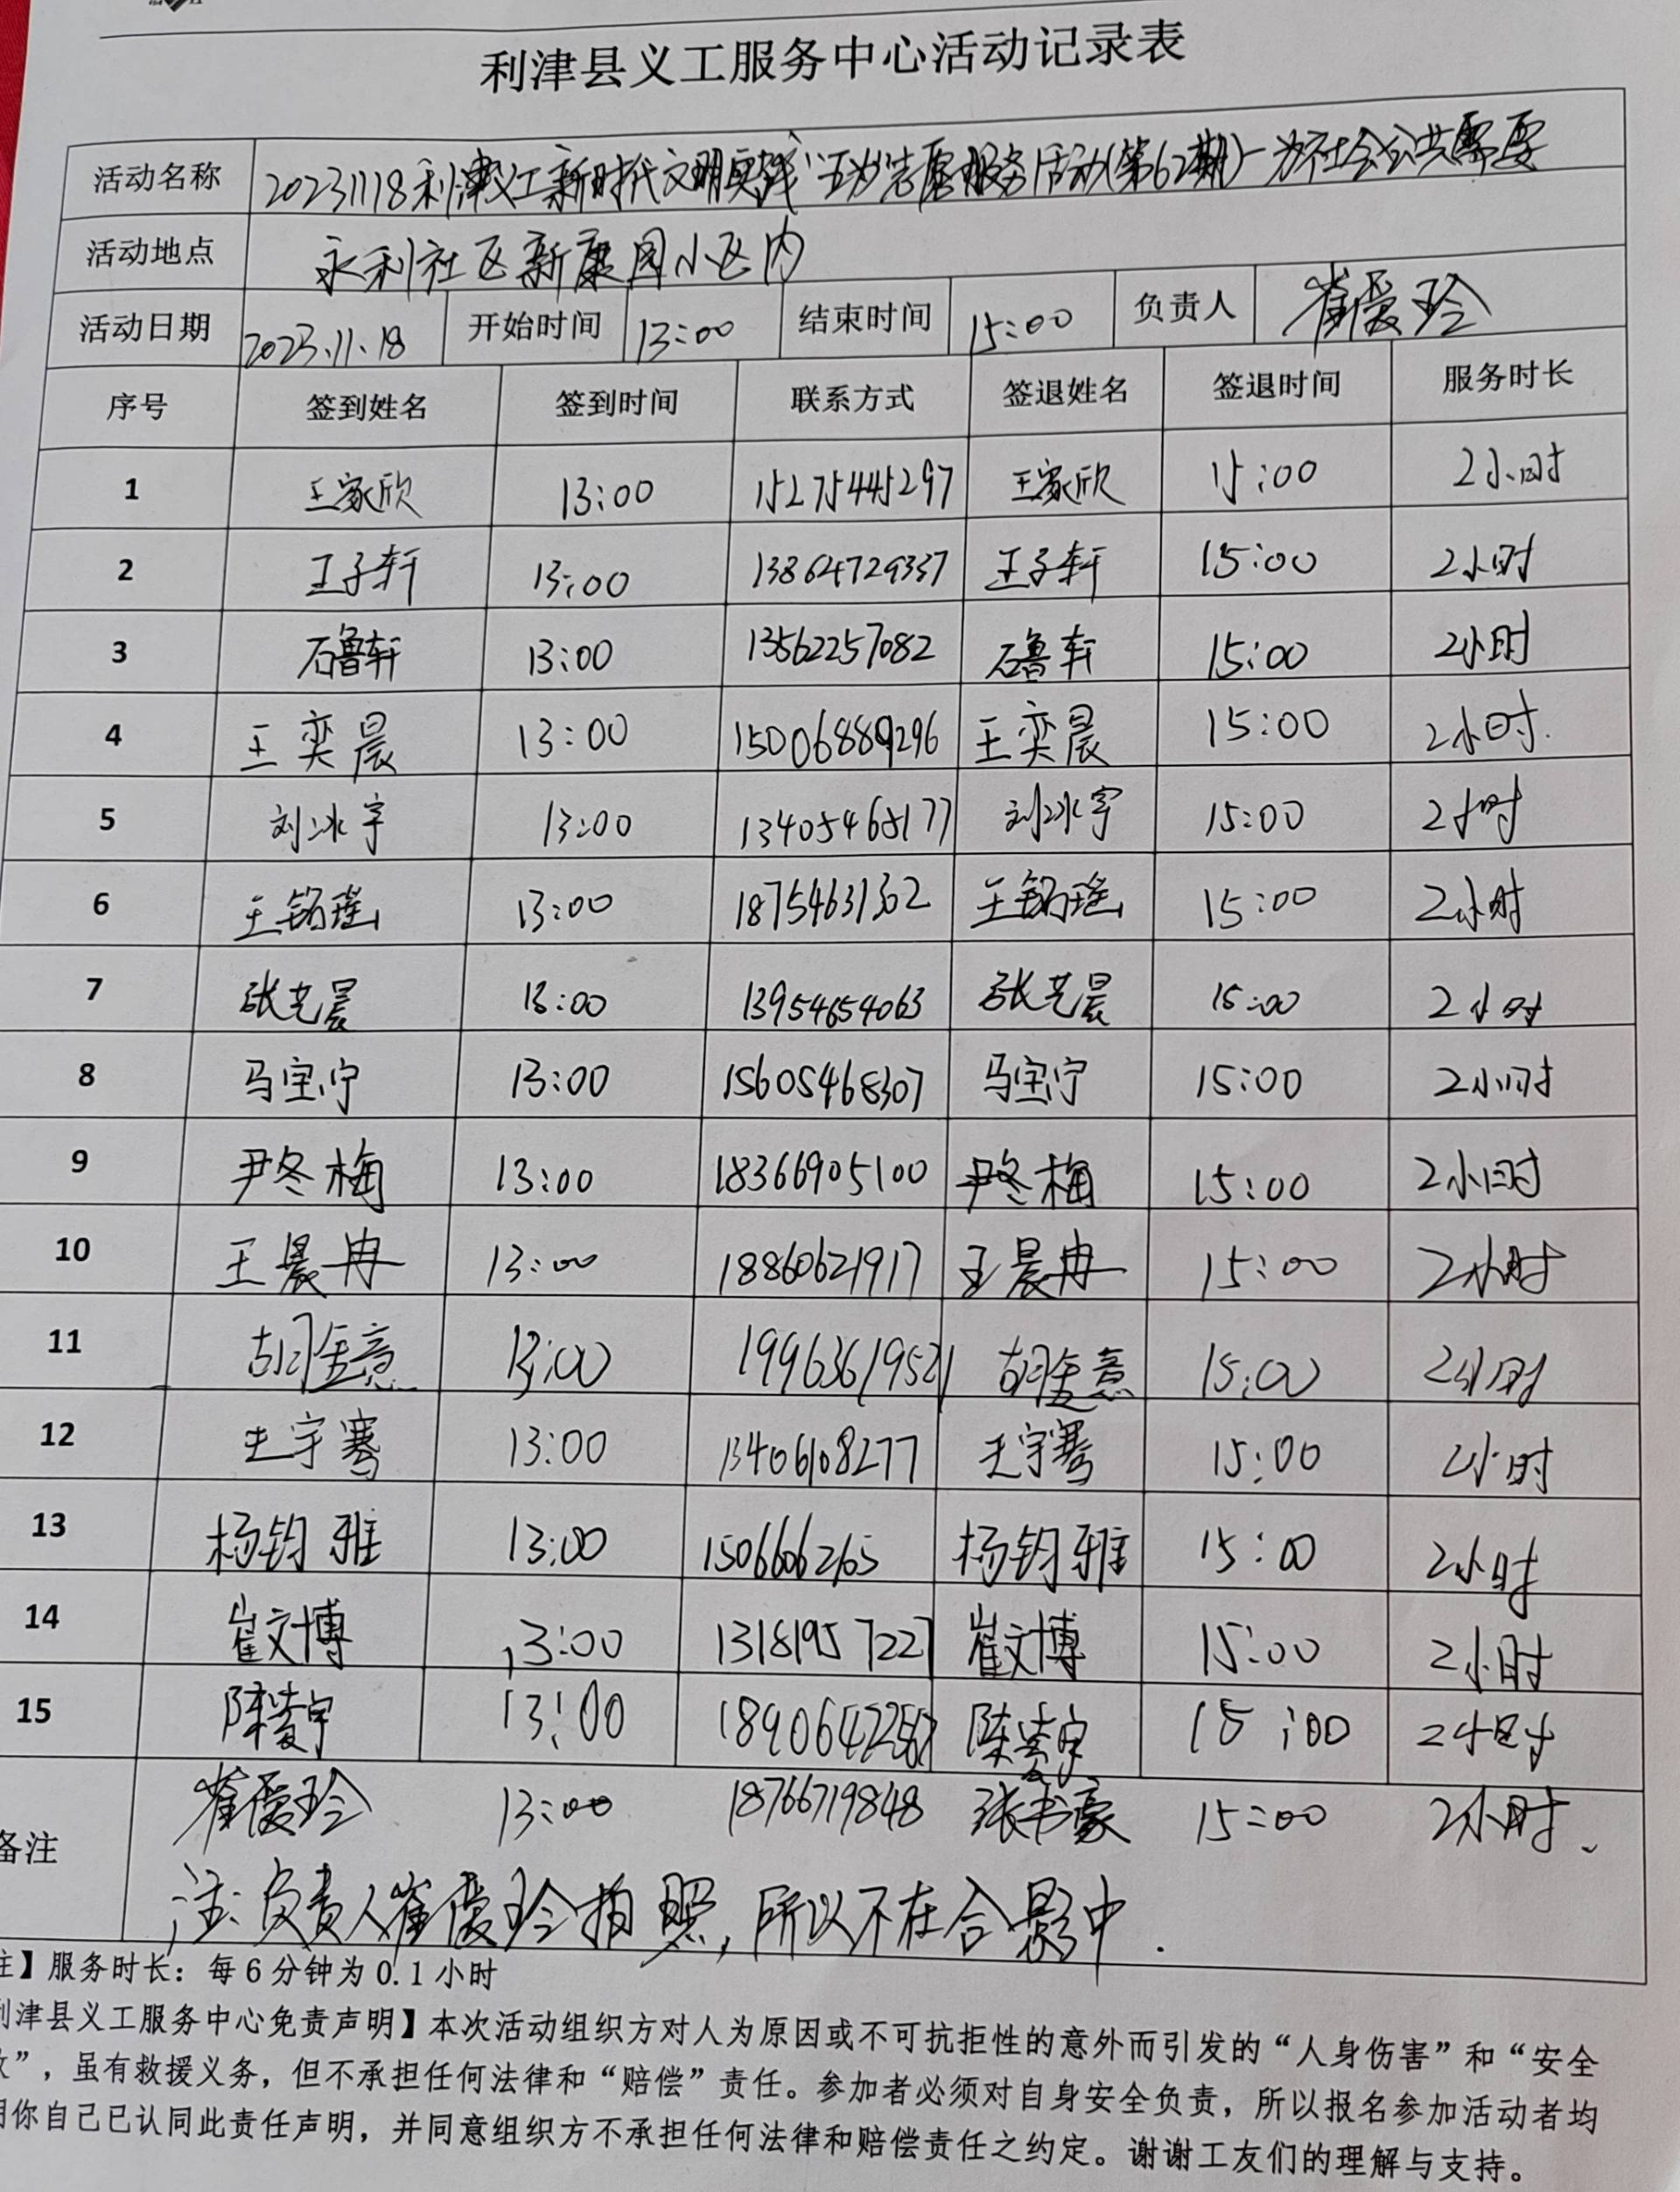 利津县义工服务中心活动记录表
活动名称 20231118利津义工新时代文明实践"五为"志愿服务活动(第62期)-为社会公共需要
活动地点 永利社区新康园小区内
活动日期 2023.11.18 开始时间 13:00 结束时间 15:00 负责人 崔爱玲
序号 签到姓名 签到时间 联系方式 签退姓名 签退时间 服务时长
1 王家欣 13:00 15275445297 王家欣 15:00 2小时
2 王子轩 13:00 13864729337 王子轩 15:00 2小时
3 石鲁轩 13:00 13562257082 石鲁轩 15:00 2小时
4 王奕晨 13:00 15006889296 王奕晨 15:00 2小时.
5 刘冰宇 13:00 13405465177 刘冰宇 15:00 2小时
6 13:00 18754631302 15:00 2小时
7 张艺晨 13:00 13954654063 张艺晨 15:00 2小时
8 马宝宁 13:00 15605468307 马宝宁 15:00 2小时
9 尹冬梅 13:00 18366905100 尹冬梅 15:00 2小时
10 王晨冉 13:00 18860621917 王晨冉 15:00 2小时
11 胡金意 13:00 19963619521 胡金意 15:00 2小时
12 王宇骞 13:00 13406108277 王宇骞 15:00 2小时
13 杨钧雅 13:00 杨钧雅 15:00 2小时
14 崔文博 13:00 13181957227 崔文博 15:00 2小时
15 13:00 15:00 2小时
崔爱玲 13:00 18766719848 张书豪 15:00 2小时.
备注
注:负责人崔爱玲拍照,所以不在合影中.
注】服务时长：每6分钟为0.1小时
利津县义工服务中心免责声明】本次活动组织方对人为原因或不可抗拒性的意外而引发的“人身伤害”和“安全
”，虽有救援义务，但不承担任何法律和“赔偿”责任。参加者必须对自身安全负责，所以报名参加活动者均
明你自己已认同此责任声明，并同意组织方不承担任何法律和赔偿责任之约定。谢谢工友们的理解与支持。